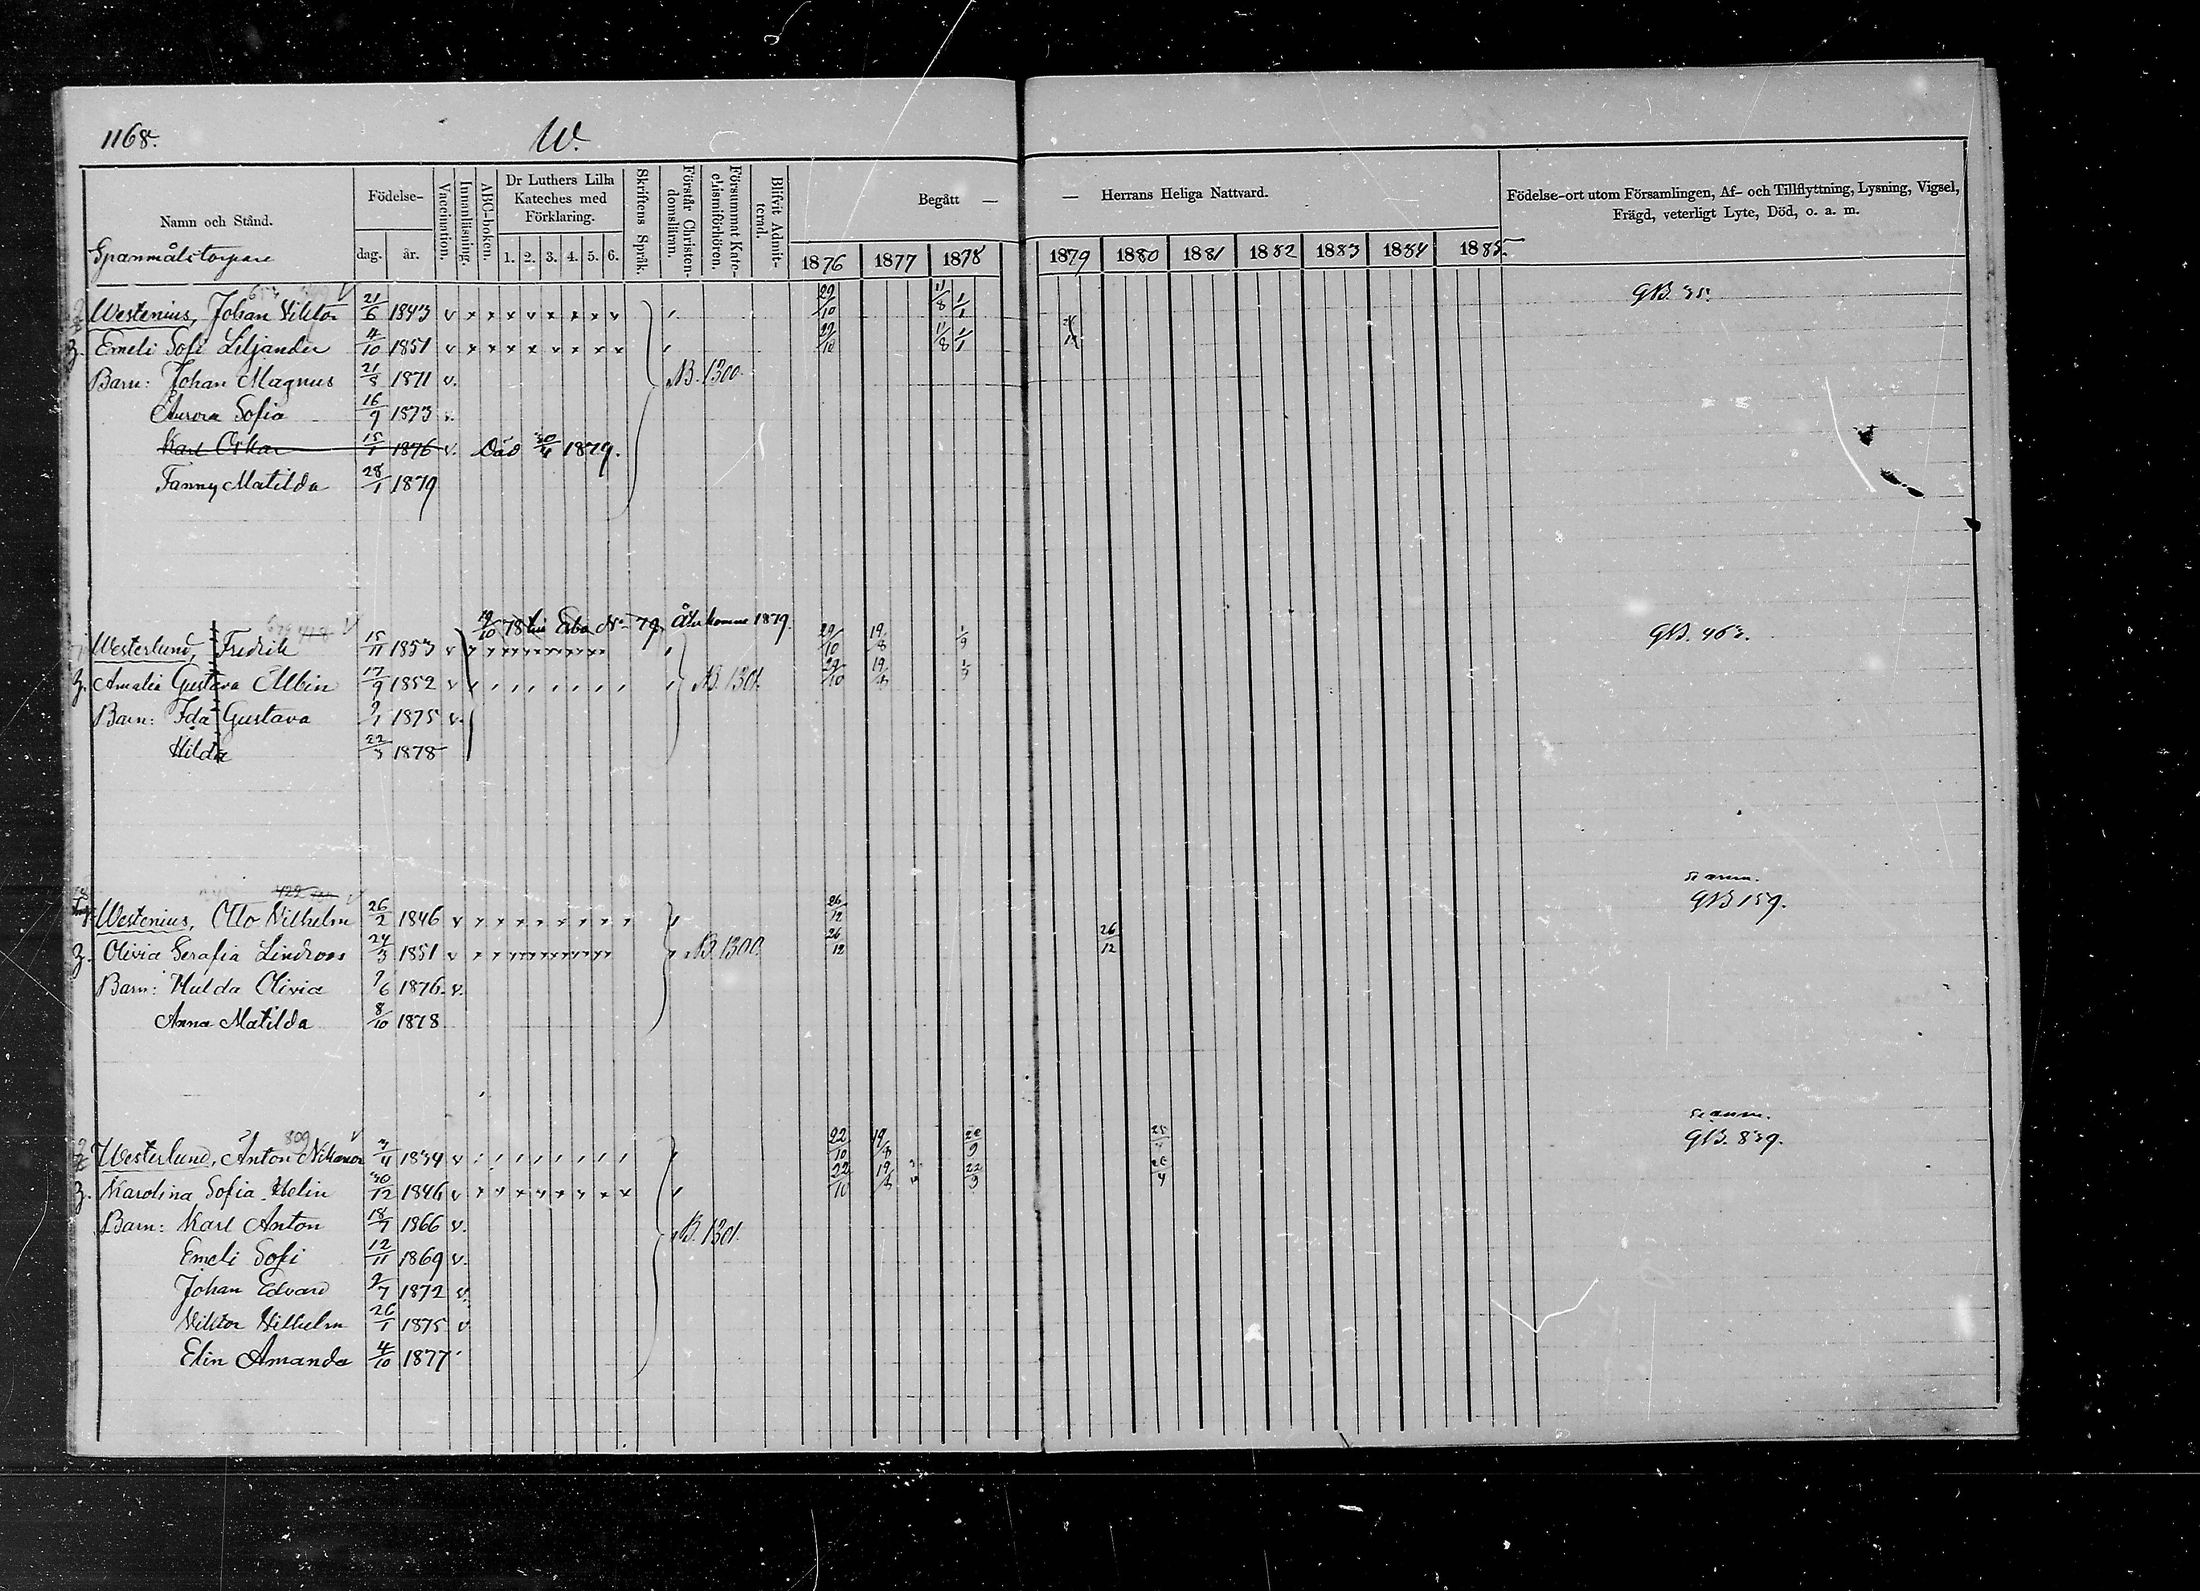 1168.
W.
Namn och Stånd.
Födelse-
dag.
år.
Vaccination.
Innanläsning.
ABC-boken.
Dr Luthers Lilla
Kateches med
Förklaring.
1. 2. 3. 4. 5. 6.
Skriftens Språk.
Förstår Christen-
domsläran.
Försummat Kate-
chismiförhören.
Blifvit Admit-
terad.
Begått —
— Herrans Heliga Nattvard.
Födelse-ort utom Församlingen, Af- och Tillflyttning, Lysning, Vigsel,
Frägd, veterligt Lyte, Död, o. a. m.
1876 1877 1878 1879 1880 1881 1882 1883 1884 1885.
Spanmålstorpare
Westenius, Johan Viktor 21/6 1843 v 29/10 11/8 1/1 GB. 35.
Emeli Sofi Liljander 4/10 1851 v 29/10 11/8 1/1
Barn: Johan Magnus 21/8 1871 v. NB. 1300.
Aurora Sofia 16/9 1873 v.
Karl Oskar 15/1 1876 v. Död 30/4 1879.
Fanny Matilda 28/1 1879
19/10 78 till Åbo No 79. Återkomne 1879.
Westerlund, Fredrik 15/11 1853 v 29/10 19/8 1/9 GB. 463.
Amalia Gustava Albin 17/9 1852 v NB. 1301. 29/10 19/8
Barn: Ida Gustava 9/1 1875 v.
Hilda 22/3 1878
GB 159.
Westenius, Otto Vilhelm 26/2 1846 v 26/12
Olivia Serafia Lindroos 24/3 1851 v NB. 1300. 26/12 26/12
Barn: Hulda Olivia 9/6 1876. v.
Anna Matilda 8/10 1878
809
Westerlund, Anton Nikanor 3/4 1834 v 22/10 19/8 22/9 GB. 839.
Karolina Sofia Helin 30/12 1846 v 22/10 19/8 22/9
Barn: Karl Anton 18/7 1866 v. NB. 1301.
Emeli Sofi 12/11 1869 v.
Johan Edvard 9/7 1872 v.
Viktor Vilhelm 26/1 1875 v
Elin Amanda 4/10 1877